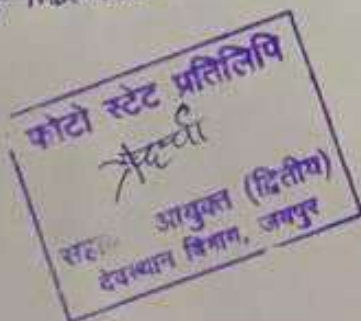 फोटो स्टेट प्रतिलिपि
आयुक्त (द्वितीय)
देवस्थान विभाग, जयपुर